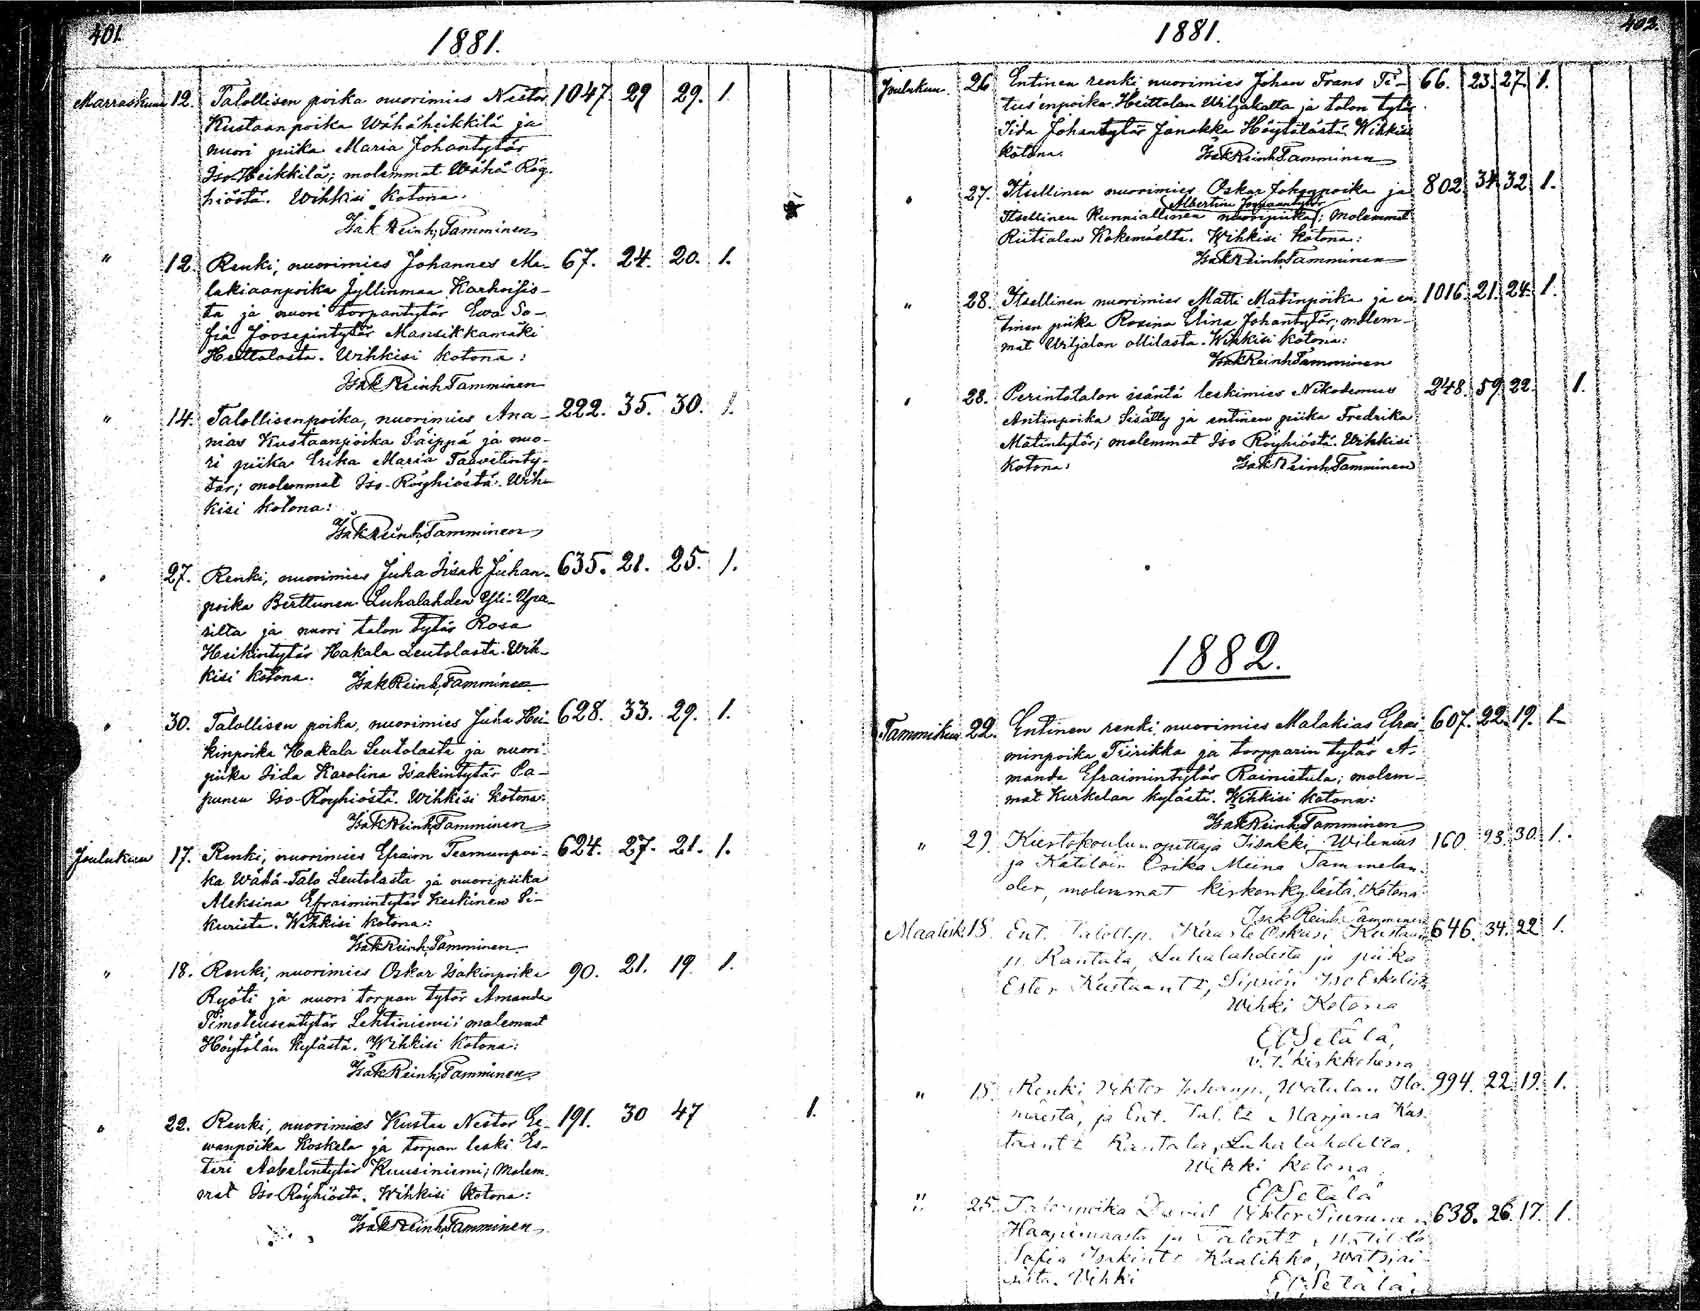 401.
1881.
Marraskuun 12. Talollisen poika nuorimies Nestor 1047 29 29. 1.
Kustaanpoika Wähäheikkilä ja
nuori piika Maria Johantytär
Iso-Heikkilä; molemmat Wähä Röy-
hiöstä. Wihkisi kotona.
Isak Reinh. Tamminen
" 12. Renki, nuorimies Johannes Me- 67. 24. 20. 1.
lakiaanpoika Jyllinmaa Karhoisis-
ta ja nuori torpantytär Ewa So-
fia Joosepintytär Mansikkamäki
Hettolasta. Wihkisi kotona:
Isak Reinh. Tamminen
" 14. Talollisenpoika, nuorimies Ana- 222. 35. 30. 1.
nias Kustaanpoika Päippä ja nuo-
ri piika Erika Maria Taavetinty-
tär; molemmat Iso-Röyhiöstä. Wih-
kisi kotona:
Isak Reinh. Tamminen
" 27. Renki, nuorimies Juha Iisak Juhan- 635. 21. 25. 1.
poika Berttunen Luhalahden Yli-
silta ja nuori talon tytär Rosa
Heikintytär Hakala Leutolasta. Wih-
kisi kotona. Isak Reinh. Tamminen
" 30. Talollisen poika, nuorimies Juha Hei- 628. 33. 29. 1.
kinpoika Hakala Leutolasta ja nuori
piika Iida Karolina Isakintytär Pa-
punen Iso-Röyhiöstä. Wihkisi kotona:
Isak Reinh. Tamminen
Joulukuun 17. Renki, nuorimies Efraim Teemunpoi- 624. 27. 21. 1.
ka Wähä-Talo Leutolasta ja nuoripiika
Aleksina Efraimintytär Keskinen Si-
kurista. Wihkisi kotona:
Isak Reinh. Tamminen
" 18. Renki, nuorimies Oskar Isakinpoika 90. 21. 19 1.
Ryöti ja nuori torpan tytär Amanda
Timoteusentytär Lehtiniemi; molemmat
Höytölän kylästä. Wihkisi kotona:
Isak Reinh. Tamminen
" 22. Renki, nuorimies Kustaa Nestor Ee- 191. 30 47 1.
wanpoika Koskela ja torpan leski Es-
teri Aabelintytär Kuusiniemi; Molem-
mat Iso Röyhiöstä. Wihkisi kotona:
Isak Reinh. Tamminen
403.
1881.
Joulukuu. 26 Entinen renki nuorimies Johan Frans Ti- 66. 23. 27. 1.
tusenpoika Heittolan Wiljakalta ja talon tytär
Iida Johantytär Janakka Höytölästä. Wihkisi
kotona. Isak Reinh. Tamminen
" 27. Itsellinen nuorimies Oskar Johanpoika ja 802. 34. 32. 1.
Albertina
Itsellinen Kunniallinen nuoripiika; molemmat
Riitialan Kokemäelta. Wihkisi kotona:
Isak Reinh. Tamminen
" 28. Itsellinen nuorimies Matti Matinpoika ja en- 1016. 21. 24. 1.
tinen piika Rosina Elina Johantytär; molem-
mat Wiljalan Ollilasta. Wihkisi kotona:
Isak Reinh. Tamminen
" 28. Perintotalon isäntä leskimies Nikodemus 248. 59. 22. 1.
Antinpoika Sisättö ja entinen piika Fredrika
Matintytär; molemmat Iso Röyhiöstä. Wihkisi
kotona: Isak Reinh. Tamminen
1882.
Tammikuu 22. Entinen renki, nuorimies Malakias Efrai- 607. 22. 19. 1.
minpoika Tiirikka ja torpparin tytär A-
manda Efraimintytär Rainistula; molem-
mat Kurkelan kylästä. Wihkisi kotona:
Isak Reinh. Tamminen
" 29. Kiertokoulun opettaja Iisakki Wilenius 160 23. 30. 1.
ja Kätilöin Erika Miina Tammelan-
der, molemmat kirkonkylästä. Kotona
Isak Reinh. Tamminen
Maalisk. 18. Ent. Talollp. Kaarle Oskari Kustaan 646. 34. 22 1.
p. Rantala, Luhalahdesta ja piika
Ester Kustaant., Sipsiön Iso Eskelistä
Wihki Kotona
E. Setälä,
v. t. kirkkoherra
" 18. Renki Viktor Juhanp., Watulan Ha- 994. 22. 19. 1.
mäestä, ja Ent. Tal. tr Marjana Kus-
taant. Rantala, Luhalahdelta.
Wihki kotona.
E. Setälä
" 25. Talonpoika David Viktor 638. 26. 17. 1.
ja Talont. Matilda
Sofia Isakint. Kaalikko,
Vihki E. Setälä.